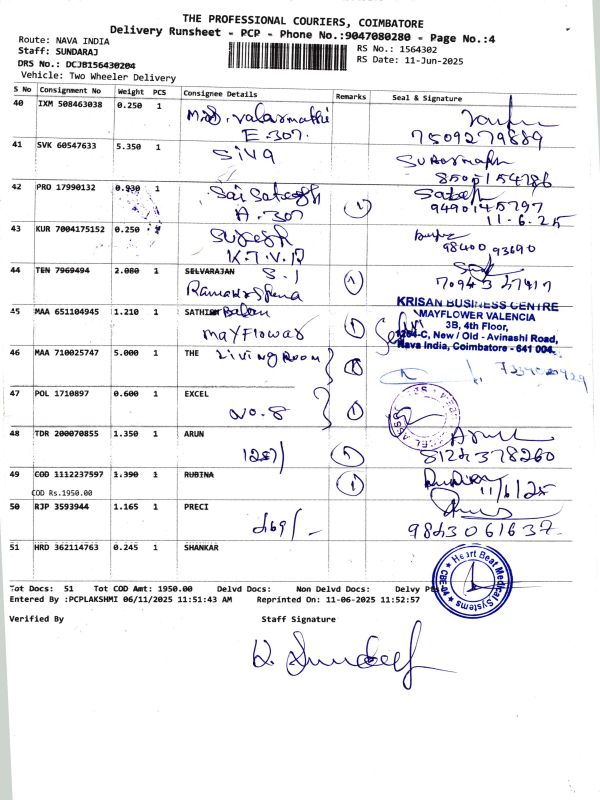 THE PROFESSIONAL COURIERS, COIMBATORE
Delivery Runsheet - PCP - Phone No.:9047080280 - Page No.:4
Route: NAVA INDIA
Staff: SUNDARAJ
DRS No.: DCJB156430204
Vehicle: Two Wheeler Delivery
RS No.: 1564302
RS Date: 11-Jun-2025
S No Consignment No Weight PCS Consignee Details Remarks Seal & Signature
40 IXM 508463038 0.250 1 Valarmathi
E.307 7509279889
41 SVK 60547633 5.350 1 Siva
8505154786
42 PRO 17990132 0.930 1 Sai Sateesh
A.307 1 9490145797
11.6.25
43 KUR 7004175152 0.250 1 Sujesh
K.T.V.R 98400 93690
44 TEN 7969494 2.080 1 SELVARAJAN S.I
Ramakrishna 1
45 MAA 651104945 1.210 1 SATHISH Balan
mayflower 1
KRISAN BUSINESS CENTRE
MAYFLOWER VALENCIA
3B, 4th Floor,
1264-C, New / Old - Avinashi Road,
Nava India, Coimbatore - 641 004.
46 MAA 710025747 5.000 1 THE Living Room
47 POL 1710897 0.600 1 EXCEL
NO.8 1
48 TDR 200070855 1.350 1 ARUN
1287/ 8122378260
49 COD 1112237597 1.390 1 RUBINA 1
COD Rs.1950.00 11/6/25
50 RJP 3593944 1.165 1 PRECI
9843061637
51 HRD 362114763 0.245 1 SHANKAR
Heart Beat Medical Systems
CBE-04
Tot Docs: 51 Tot COD Amt: 1950.00 Delvd Docs: Non Delvd Docs: Delvy
Entered By :PCPLAKSHMI 06/11/2025 11:51:43 AM Reprinted On: 11-06-2025 11:52:57
Verified By Staff Signature